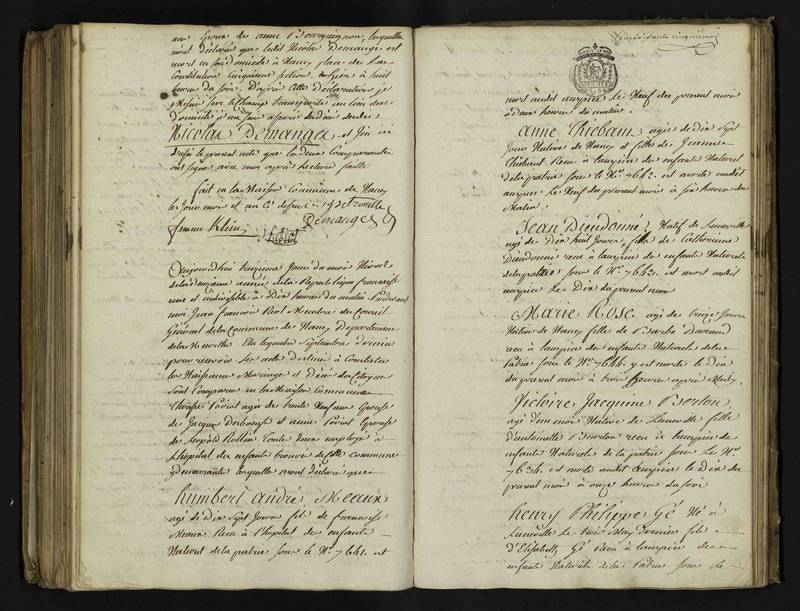 au Epoux de anne Bourguignon, laquelle
mont déclarée que ledit Nicolas Demange est
mort en son domicile à Nancy place de la
Constitution cinquieme section, hier à huit
heure du soir. D'après cette Déclaration je
sur le champ transporté au lieu de ce
domicile je me suis assuré du décès dudit
Nicolas Demanges, et j'en ai
dressé le présent acte que les deux Comparantes
ont signés avec moi après lecture faite
fait en la Maison Commune de Nancy
les Jour mois et an cy dessus.
femme Klein Demanges
Aujourd'hui Jour du mois Nivôse
de la deuxieme année de la Republique francaise
une et indivisible à Dix heures du matin Pardevant
moi Jean francois Membre du Conseil
Général de la Commune de Nancy Departement
de la Meurthe Elu le Septembre dernier
pour recevoir les acte destiné à Constater
les Naissances Mariage et Décès des Citoyens
Sont Comparues en la Maison Commune
Therese agée de trente Neuf ans Epouse
de Jacque et anne Epouse
de Leopold toute deux employé à
l'hopital des enfants trouvés de cette commune
y demeurante lesquelle mont déclarée que
humbert andré Meaux
agé de dix Sept Jours fils de francoise
Meaux Recu à l'hopital des enfants
Naturel de la patrie sous le No. 7641. est
mort audit auspice le Neuf du present mois
à heures du matin.
anne Thiebaut agée de Dix Sept
Jours Native de Nancy et filles de Jeanne
Thiebaut Recu à lauspice des enfants Naturel
de la patrie sous le No. 7642. est morte audit
auspice le Neuf du present mois à six heures du
Matin.
Jean Dieudonné, Natif de
agé de Dix huit Jours, fils de Catherinne
Dieudonné recu à lauspice des enfants Naturels
de la patrie sous le No. 7653. est mort audit
auspice le Dix du present mois
Marie Rose, agé de treize Jours
Native de Nancy fille de Barbe
recu à lauspice des enfants Naturels de la
Patrie sous le No. 7644. y est morte le Dix
du present mois à trois heures après Midy.
Victoire Jacquine Berton
agé d'un mois Native de Luneville fille
d'antoinette Berton recu à lauspice des
enfants Naturels de la patrie sous le No.
7634. est morte audit auspice le Dix du
present mois à onze heures du soir
henry Philippe Gé Né à
Luneville le trois May dernier fils
D'Elisabeth Gé recu à lauspice des
enfants Naturels de la Patrie sous le